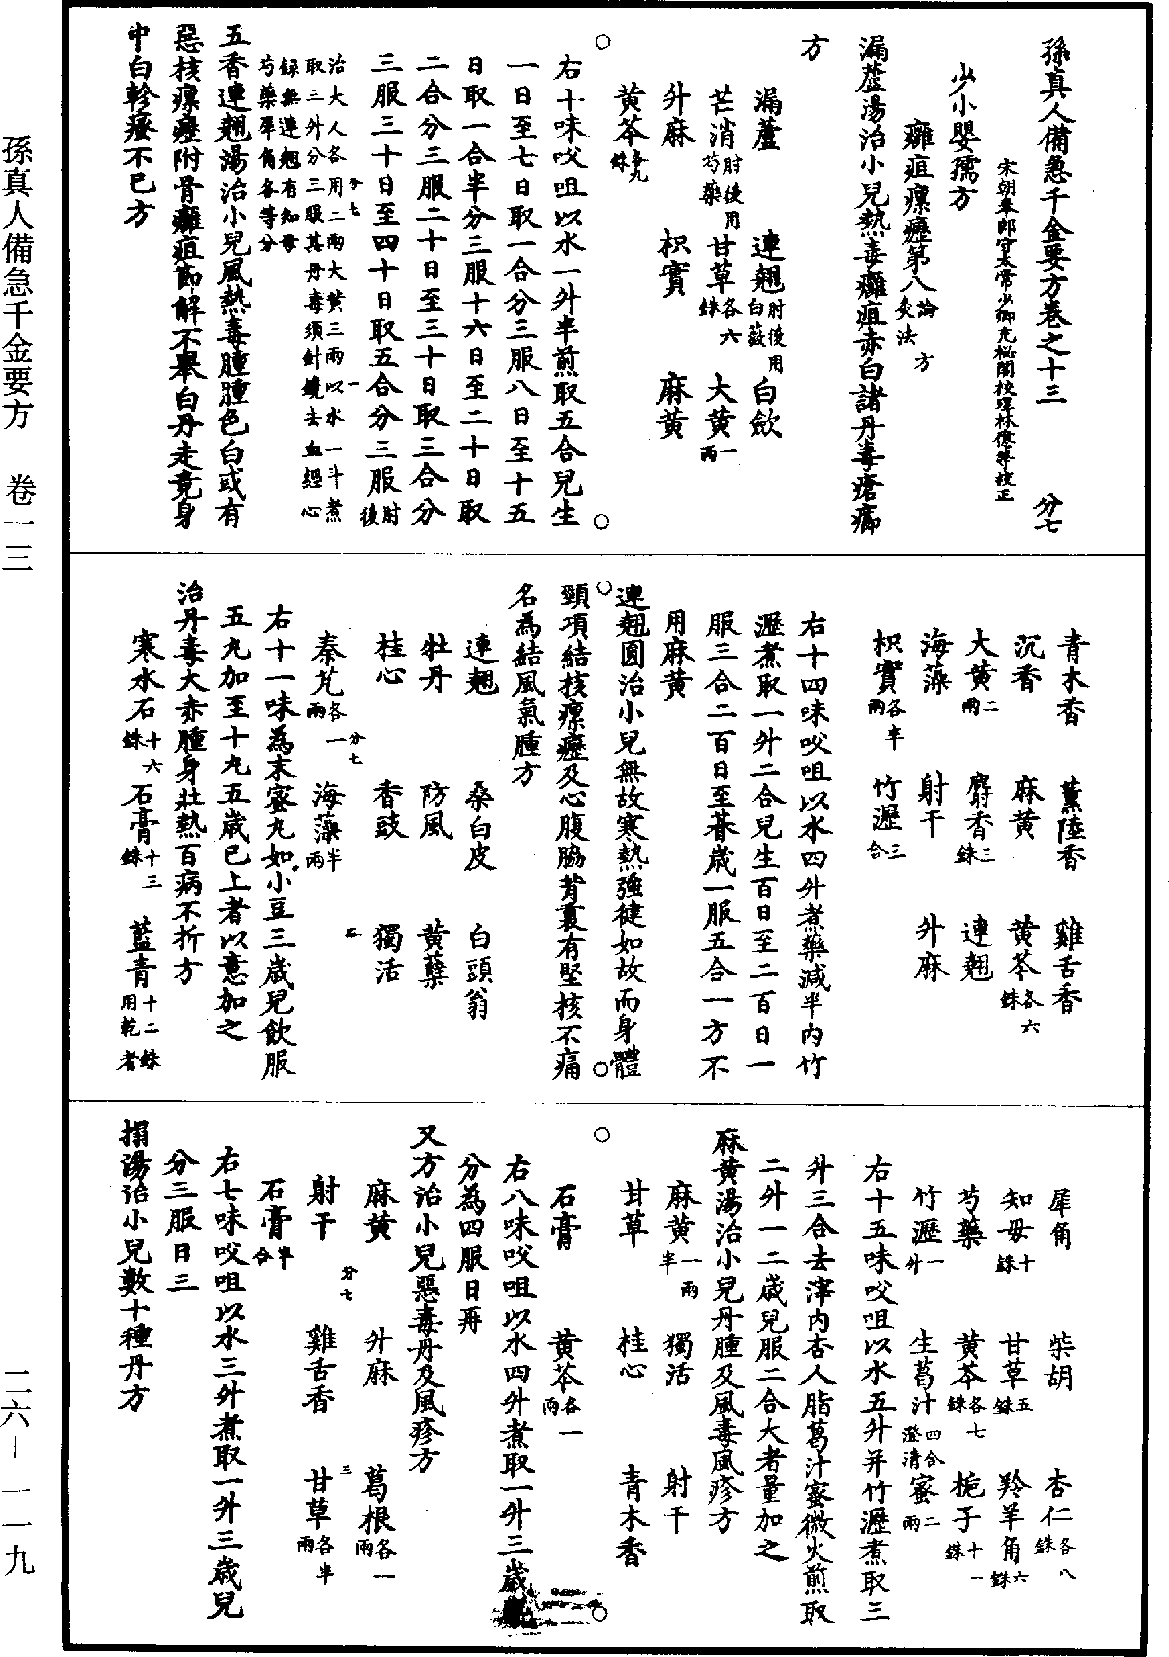 孫真人備急千金要方卷之十三　分七
宋朝奉郎守太常少卿充秘閣校理林億等校正
少小嬰孺方
癰疽瘰癧第八論　方　灸法
漏蘆湯治小兒熱毒癰疽赤白諸丹毒瘡癤
方
漏蘆　連翹肘後用白薇　白斂
芒消肘後用芍藥　甘草各六銖　大黃一兩
升麻　枳實　麻黃
黃芩各九銖
右十味㕮咀以水一升半煎取五合兒生
一日至七日取一合分三服八日至十五
日取一合半分三服十六日至二十日取
二合分三服二十日至三十日取三合分
三服三十日至四十日取五合分三服肘後
治大人各用二兩大黃三兩以水一斗煮
取三升分三服其丹毒須針鑱去血經心
錄無連翹有知母
芍藥犀角各等分
五香連翹湯治小兒風熱毒腫腫色白或有
惡核瘰癧附骨癰疽節解不舉白丹走竟身
中白軫瘙不已方
青木香　薰陸香　雞舌香
沉香　麻黃　黃芩各六銖
大黃二兩　麝香三銖　連翹
海藻　射干　升麻
枳實各半兩　竹瀝三合
右十四味㕮咀以水四升煮藥減半內竹
瀝煮取一升二合兒生百日至二百日一
服三合二百日至朞歲一服五合一方不
用麻黃
連翹圓治小兒無故寒熱強健如故而身體
頸項結核瘰癧及心腹脇背裏有堅核不痛
名為結風氣腫方
連翹　桑白皮　白頭翁
牡丹　防風　黃蘗
桂心　香豉　獨活
分七　二
秦艽各一兩　海藻半兩
右十一味為末蜜丸如小豆三歲兒飲服
五丸加至十丸五歲已上者以意加之
治丹毒大赤腫身壯熱百病不折方
寒水石十六銖　石膏十三銖　藍青十二銖用乾者
犀角　柴胡　杏仁各八銖
知母十銖　甘草五銖　羚羊角六銖
芍藥　黃芩各七銖　梔子十一銖
竹瀝一升　生葛汁四合澄清　蜜二兩
右十五味㕮咀以水五升并竹瀝煮取三
升三合去滓內杏人脂葛汁蜜微火煎取
二升一二歲兒服二合大者量加之
麻黃湯治小兒丹腫及風毒風疹方
麻黃一兩半　獨活　射干
甘草　桂心　青木香
石膏　黃芩各一兩
右八味㕮咀以水四升煮取一升三歲兒
分為四服日再
又方治小兒惡毒丹及風疹方
麻黃　升麻　葛根各一兩
分七　三
射干　雞舌香　甘草各半兩
石膏半合
右七味㕮咀以水三升煮取一升三歲兒
分三服日三
搨湯治小兒數十種丹方
孫真人備急千金要方　卷一三
二六－一一九